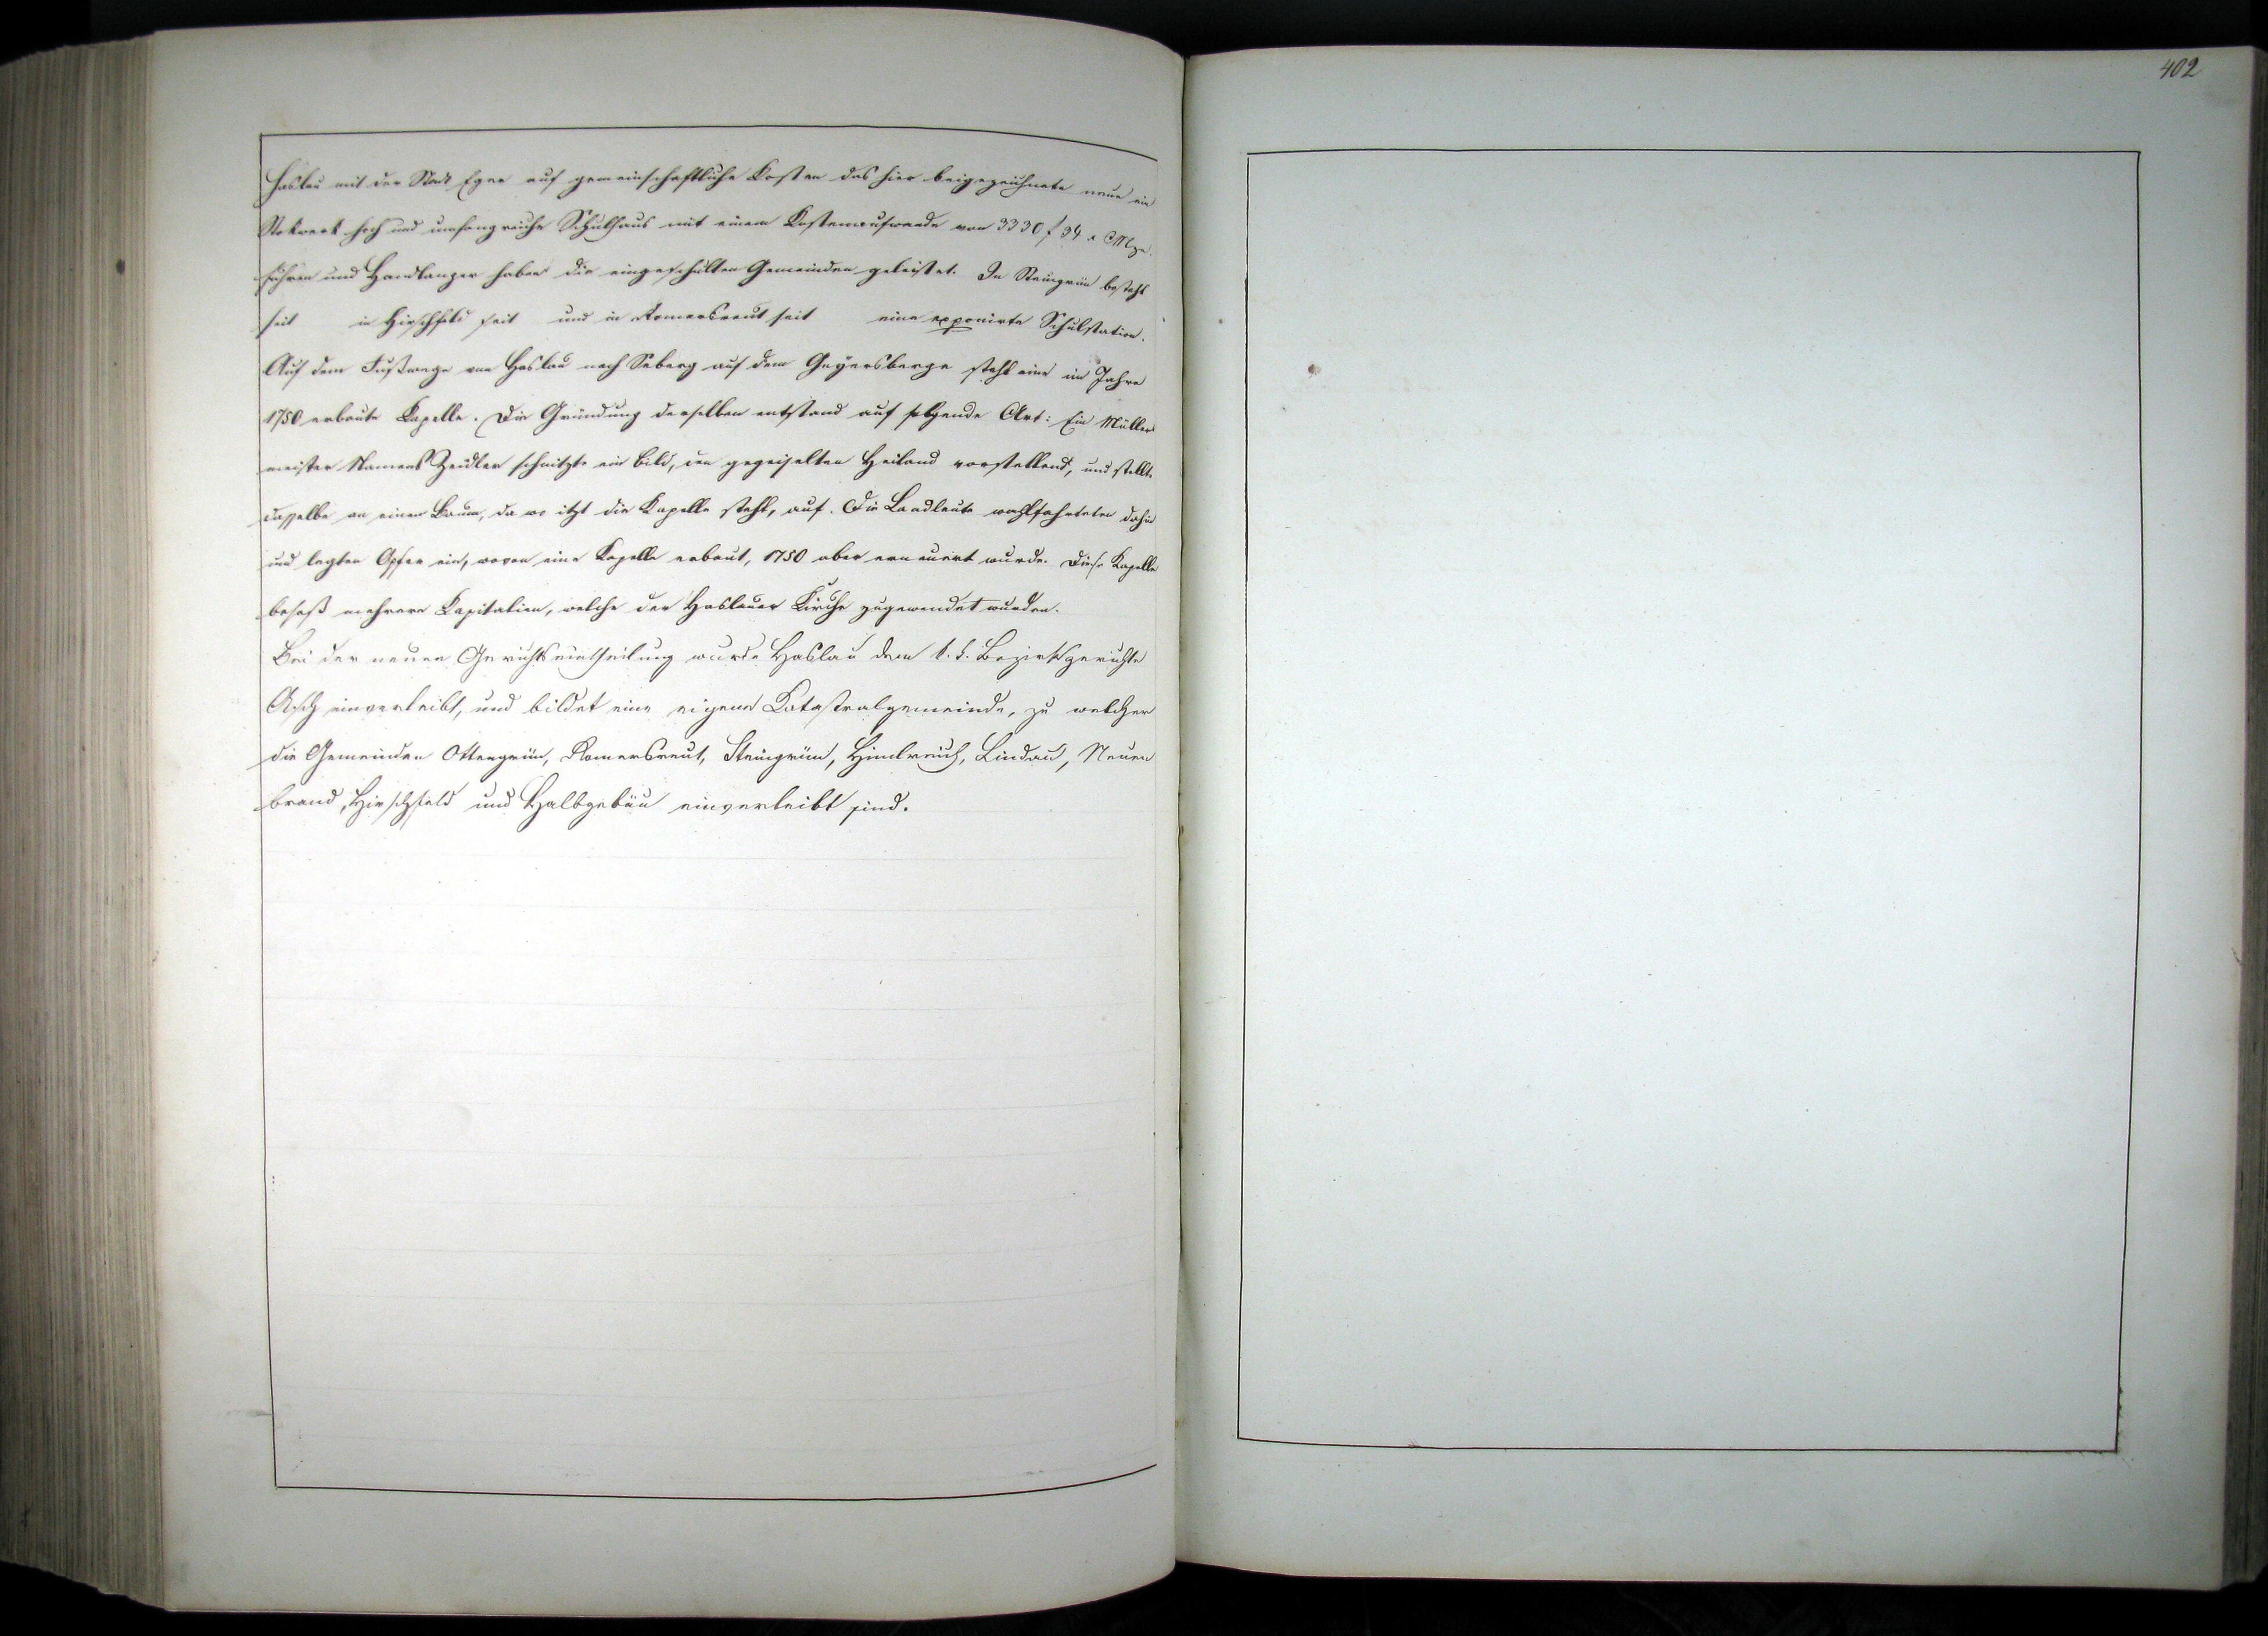 402
Haslau mit der Stadt Eger auf gemeinschaftliche Kosten das hier beigezeichnete neue ein
Stokwerk hoch und umfangreiche Schulhaus mit einem Kostenaufwande von 3330 f 34 x CMze.
Fuhren und Handlanger haben die eingeschulten Gemeinden geleistet. In Steingrün besteht
seit in Hirschfeld seit und in Romersreut seit eine exponirte Schulstation.
Auf dem Fußwege von Haslau nach Seberg auf dem Geyersberge steht eine im Jahre
1750 erbaute Kapelle. Die Gründung derselben entstand auf folgende Art: Ein Müller
meister Namens Zeidler schnitzte ein Bild, den gegeiselten Heiland vorstellend, und stellte
dasselbe an einen Baum, da wo itzt die Kapelle steht, auf. Die Landleute wahlfahrteten dahin
und legten Opfer ein, wovon eine Kapelle erbaut, 1750 aber erneuert wurde. Diese Kapelle
besaß mehrere Kapitalien, welche der Haslauer Kirche zugewendet wurden.
Bei der neuen Gerichtseintheilung wurde Haslau dem k. k. Bezirksgerichte
Asch einverleibt, und bildet eine eigene Katastralgemeinde, zu welcher
die Gemeinden Ottengrün, Romersreut, Steingrün, Himlreich, Lindau, Neuen
brand, Hirschfeld und Halbgebäu einverleibt sind.